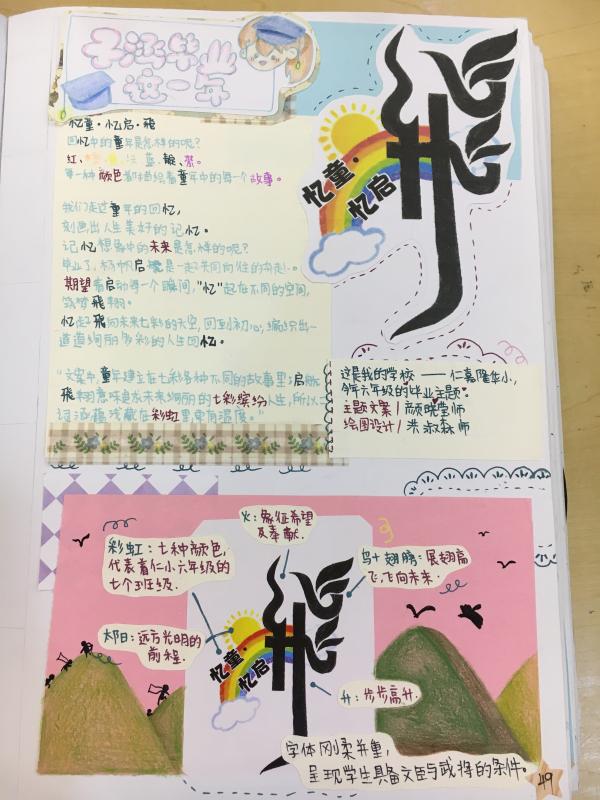 子涵毕业
这一年
忆童·忆启·飛
回忆中的童年是怎样的呢？
红、橙、黄、绿、蓝、靛、紫。
每一种颜色着味道绘着童年中的每一个故事。
我们走过童年的回忆，
刻画出人生美好的记忆。
记忆想象中的未来是怎样的呢？
毕业了，扬帆启航是一起共同向往的奔赴。
期望着启动每一个瞬间，"忆"起在不同的空间，
筑梦飛翔。
忆起飛向未来七彩的天空，回到初心，编织出一
道道绚丽多彩的人生回忆。
"文案中，童年建立在七彩各种不同的故事里；启航
飛翔意味着未来绚丽的七彩缤纷人生，所以
词汇蕴浅藏在彩虹里更有温度。"
飛
忆童·
忆启
这是我的学校——仁嘉隆华小，
今年六年级的毕业主题。
主题文案/颜晓莹师
绘图设计/洪淑森师
火：象征希望
及奉献.
彩虹：七种颜色，
代表着仁小六年级的
七个班级.
鸟+翅膀：展翅高
飞，飞向未来.
太阳：远方光明的
前程.
飛
忆童·
忆启
升：步步高升.
字体刚柔并重，
呈现学生具备文臣与武将的条件。
49